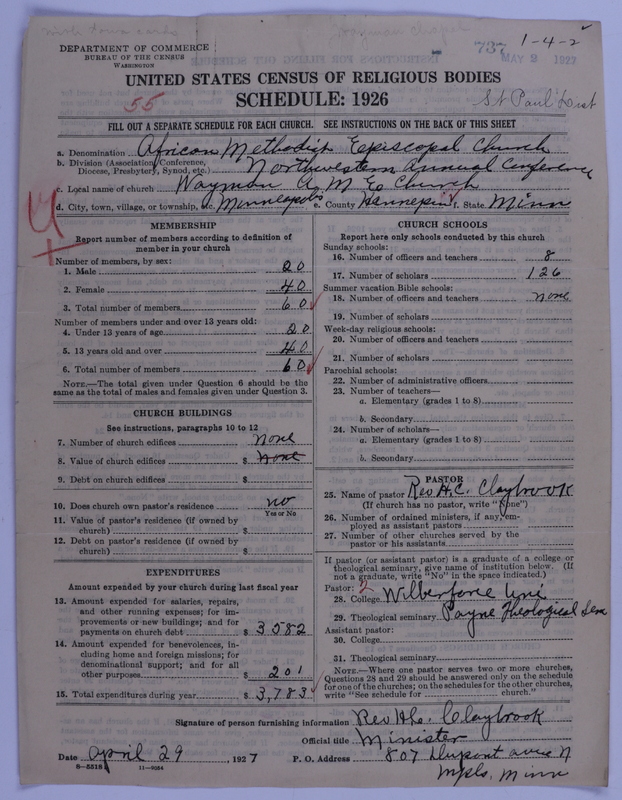 1-4-2
DEPARTMENT OF COMMERCE
BUREAU OF THE CENSUS
WASHINGTON
737 MAY 9 1927
UNITED STATES CENSUS OF RELIGIOUS BODIES
55
SCHEDULE: 1926
St Paul Dist
FILL OUT A SEPARATE SCHEDULE FOR EACH CHURCH. SEE INSTRUCTIONS ON THE BACK OF THIS SHEET
a. Denomination African Methodist Episcopal Church
b. Division (Association, Conference,
Diocese, Presbytery, Synod, etc.) Northwestern Annual Conference
c. Local name of church Wayman A M E Church
d. City, town, village, or township, etc. Minneapolis e. County Hannepin f. State Minn
MEMBERSHIP
Report number of members according to definition of
member in your church
Number of members, by sex:
1. Male 20
2. Female 40
3. Total number of members 60
Number of members under and over 13 years old:
4. Under 13 years of age 20
5. 13 years old and over 40
6. Total number of members 60
NOTE.—The total given under Question 6 should be the
same as the total of males and females given under Question 3.
CHURCH BUILDINGS
See instructions, paragraphs 10 to 12
7. Number of church edifices none
8. Value of church edifices $ none
9. Debt on church edifices $
10. Does church own pastor's residence? no
Yes or No
11. Value of pastor's residence (if owned by
church) $
12. Debt on pastor's residence (if owned by
church) $
EXPENDITURES
Amount expended by your church during last fiscal year
13. Amount expended for salaries, repairs,
and other running expenses; for im-
provements or new buildings; and for
payments on church debt $ 3582
14. Amount expended for benevolences, in-
cluding home and foreign missions; for
denominational support; and for all
other purposes $ 201
15. Total expenditures during year $ 3,783
CHURCH SCHOOLS
Report here only schools conducted by this church
Sunday schools:
16. Number of officers and teachers 8
17. Number of scholars 126
Summer vacation Bible schools:
18. Number of officers and teachers none
19. Number of scholars
Week-day religious schools:
20. Number of officers and teachers
21. Number of scholars
Parochial schools:
22. Number of administrative officers
23. Number of teachers—
a. Elementary (grades 1 to 8)
b. Secondary
24. Number of scholars—
a. Elementary (grades 1 to 8)
b. Secondary
PASTOR
25. Name of pastor Rev H.C. Claybrook
(If church has no pastor, write "None")
26. Number of ordained ministers, if any, em-
ployed as assistant pastors
27. Number of other churches served by the
pastor or his assistants
If pastor (or assistant pastor) is a graduate of a college or
theological seminary, give name of institution below. (If
not a graduate, write "No" in the space indicated.)
Pastor: 2
28. College Wilberforce Uni
29. Theological seminary Payne Theological Sem
Assistant pastor:
30. College
31. Theological seminary
NOTE.—Where one pastor serves two or more churches,
Questions 28 and 29 should be answered only on the schedule
for one of the churches; on the schedules for the other churches,
write "See schedule for church."
Signature of person furnishing information Rev H.C. Claybrook
Official title Minister
Date April 29, 1927 P. O. Address 807 Dupont ave N
Mpls. Minn
8—5318 11—9264